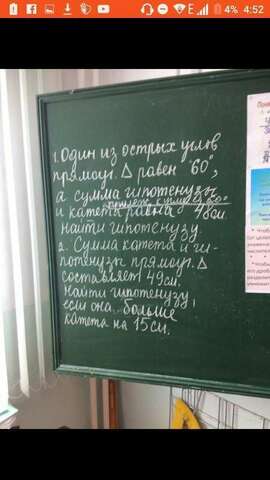 4% 4:52
1. Один из острых углов
прямоуг. Δ равен 60°,
а сумма гипотенузы
прилеж. к углу в 60°
и катета равна 48см.
найти гипотенузу.
2. Сумма катета и ги-
потенузы прямоуг. Δ
составляет 49см.
Найти гипотенузу,
если она больше
катета на 15см.